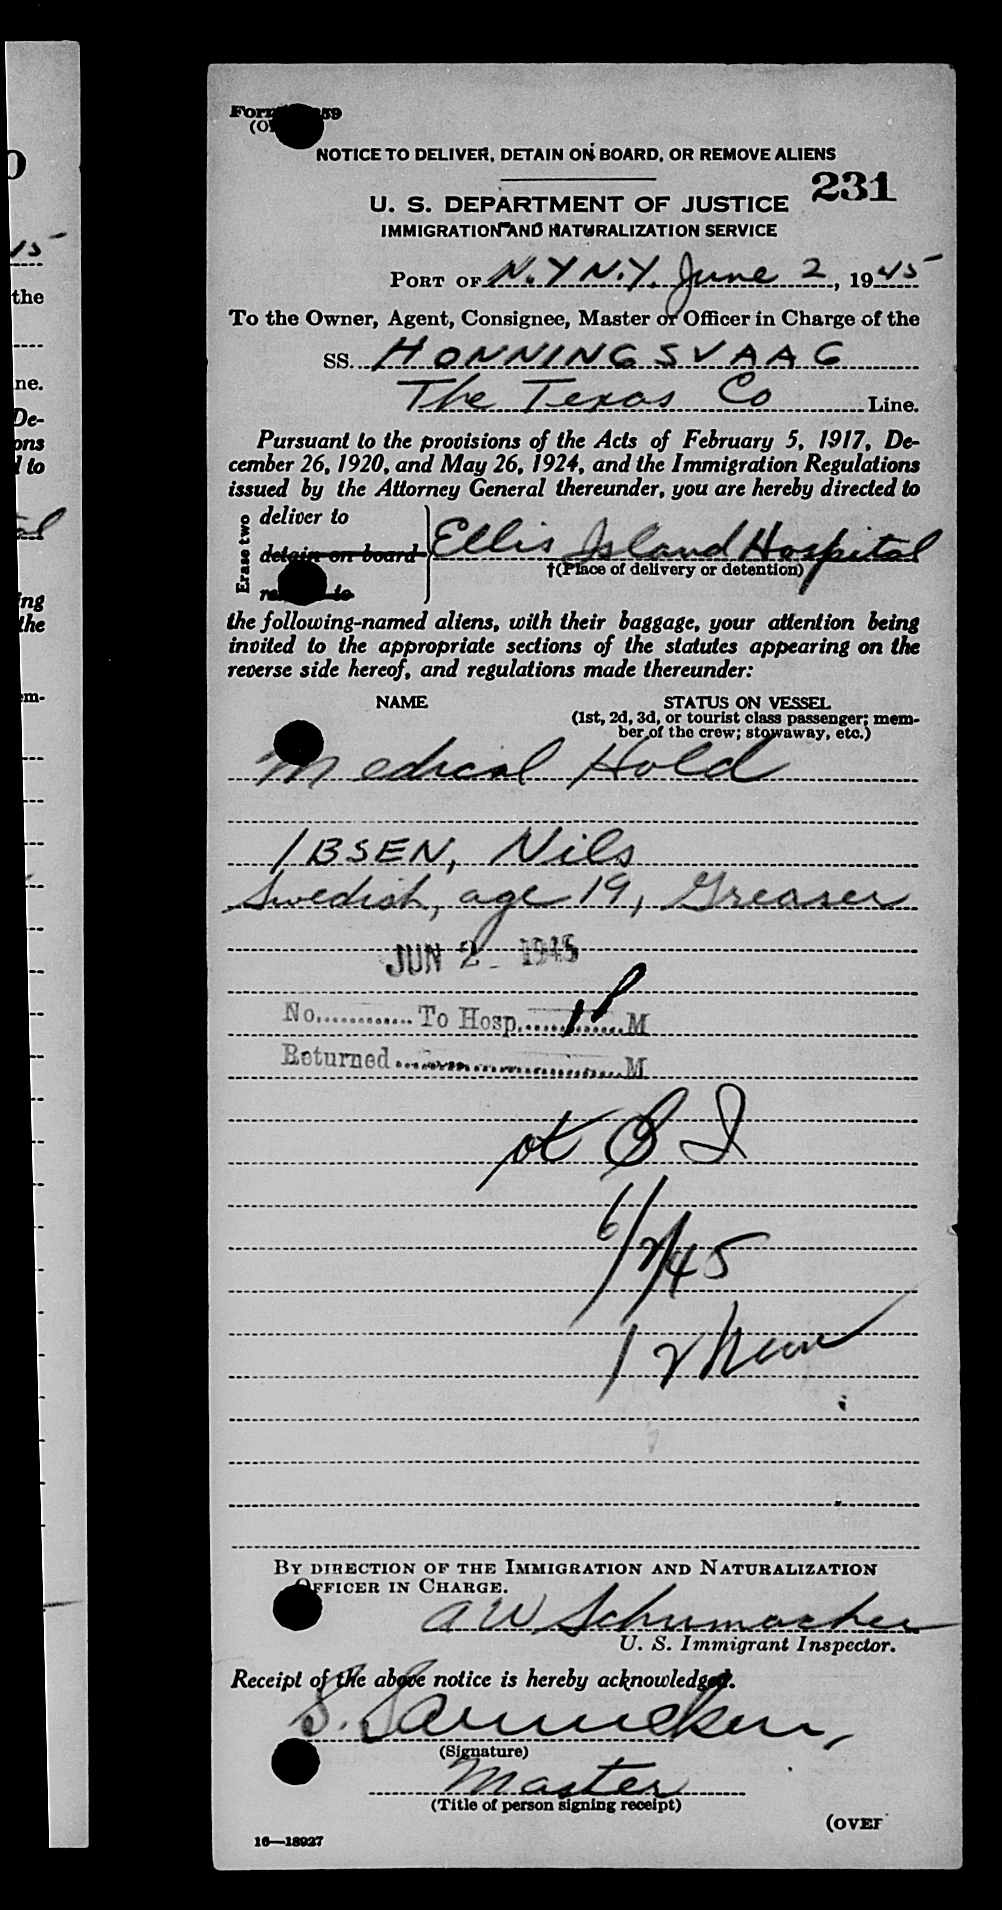 0
45
the
ne.
De-
ons
to
al
ing
the
em-
Form 259
NOTICE TO DELIVER, DETAIN ON BOARD, OR REMOVE ALIENS
231
U. S. DEPARTMENT OF JUSTICE
IMMIGRATION AND NATURALIZATION SERVICE
PORT OF N.Y N.Y. June 2, 1945
To the Owner, Agent, Consignee, Master or Officer in Charge of the
SS. HONNINGSVAAG
The Texas Co Line.
Pursuant to the provisions of the Acts of February 5, 1917, De-
cember 26, 1920, and May 26, 1924, and the Immigration Regulations
issued by the Attorney General thereunder, you are hereby directed to
Erase two
deliver to
detain on board
to
Ellis Island Hospital
†(Place of delivery or detention)
the following-named aliens, with their baggage, your attention being
invited to the appropriate sections of the statutes appearing on the
reverse side hereof, and regulations made thereunder:
NAME STATUS ON VESSEL
(1st, 2d, 3d, or tourist class passenger; mem-
ber of the crew; stowaway, etc.)
Medical Hold
IBSEN, Nils
Swedish, age 19, Greaser
JUN 2 - 1945
No. To Hosp. 1 P M
Returned M
6/2/45
12 Noon
BY DIRECTION OF THE IMMIGRATION AND NATURALIZATION
OFFICER IN CHARGE.
A W Schumacher
U. S. Immigrant Inspector.
Receipt of the above notice is hereby acknowledged.
(Signature)
Master
(Title of person signing receipt)
(OVER
16—18927